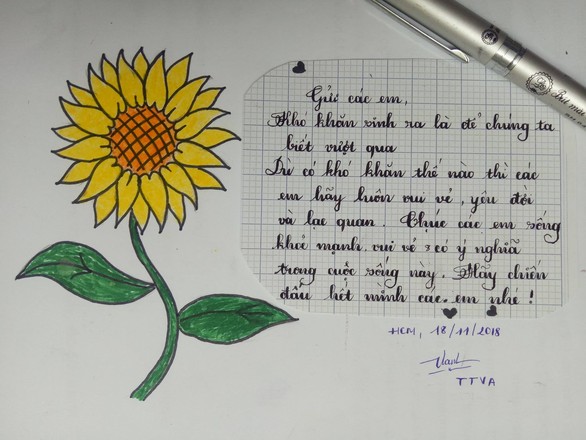 Gửi các em,
Khó khăn sinh ra là để chúng ta
biết vượt qua
Dù có khó khăn thế nào thì các
em hãy luôn vui vẻ, yêu đời
và lạc quan. Chúc các em sống
khỏe mạnh, vui vẻ & có ý nghĩa
trong cuộc sống này. Hãy chiến
đấu hết mình các em nhé!
HCM, 18/11/2018
TTVA